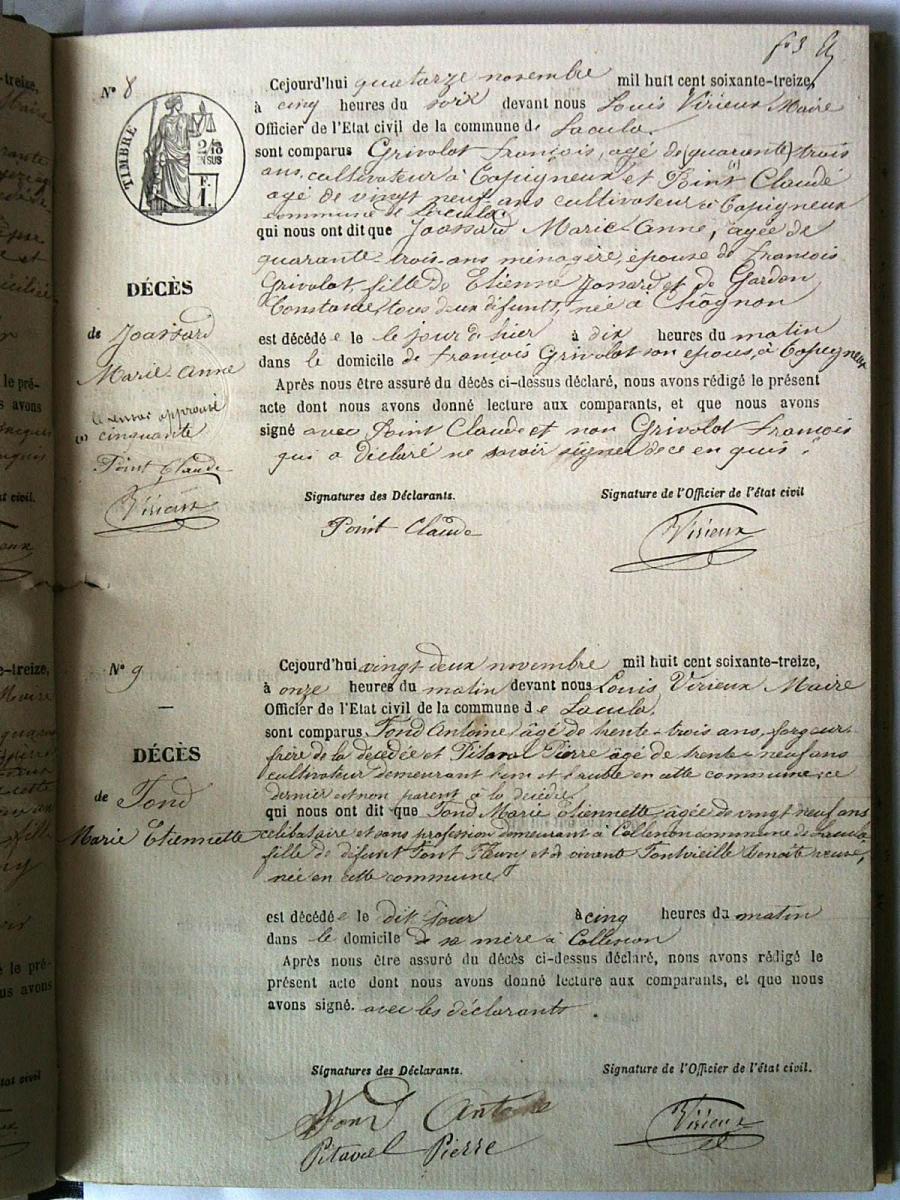 fo 3
N° 8
TIMBRE
2/10 EN SUS
F. 1.
DÉCÈS
de Joassard
Marie-Anne
le renvoi approuvé
(1) cinquante
Point Claude
Virieux
Cejourd'hui quatorze novembre mil huit cent soixante-treize,
à cinq heures du soir devant nous Louis Virieux Maire
Officier de l'Etat civil de la commune de Lacula.
sont comparus Grivolot François, agé de (quarante) trois
ans, cultivateur à Copigneux et Point Claude
agé de vingt neuf ans cultivateur à Copigneux
commune de Lacula
qui nous ont dit que Joassard Marie-Anne, agée de
quarante-trois ans ménagère, épouse de François
Grivolot, fille de Etienne Jonard et de Gardon
Constance tous deux difunts, née à Chagnon
est décédée le le jour di hier à dix heures du matin
dans le domicile de François Grivolot son epous, à Copigneux
Après nous être assuré du décès ci-dessus déclaré, nous avons rédigé le présent
acte dont nous avons donné lecture aux comparants, et que nous avons
signé avec Point Claude et non Grivolot François
qui a déclaré ne savoir signer de ce en quis.
Signatures des Déclarants.
Signature de l'Officier de l'état civil
Point Claude
Virieux
N° 9
DÉCÈS
de Fond
Marie Etiennette
Cejourd'hui vingt deux novembre mil huit cent soixante-treize,
à onze heures du matin devant nous Louis Virieux Maire
Officier de l'Etat civil de la commune de Lacula.
sont comparus Fond Antoine âgé de trente-trois ans, forgeur
frère de la décédée et Pitaval Pierre âgé de trente-neuf ans
cultivateur demeurant en cette commune ce
dernier est non parent à la décédée
qui nous ont dit que Fond Marie Etiennette, âgée de vingt neuf ans
celibataire et sans profession demeurant à Collenon commune de
fille de difunt Font Fleury et de vivant Fontvieille Benoite veuve,
née en cette commune
est décédée le dit jour à cinq heures du matin
dans le domicile de sa mère à Collenon
Après nous être assuré du décès ci-dessus déclaré, nous avons rédigé le
présent acte dont nous avons donné lecture aux comparants, et que nous
avons signé. avec les déclarants.
Signatures des Déclarants.
Signature de l'Officier de l'état civil.
Fond Antoine
Pitaval Pierre
Virieux